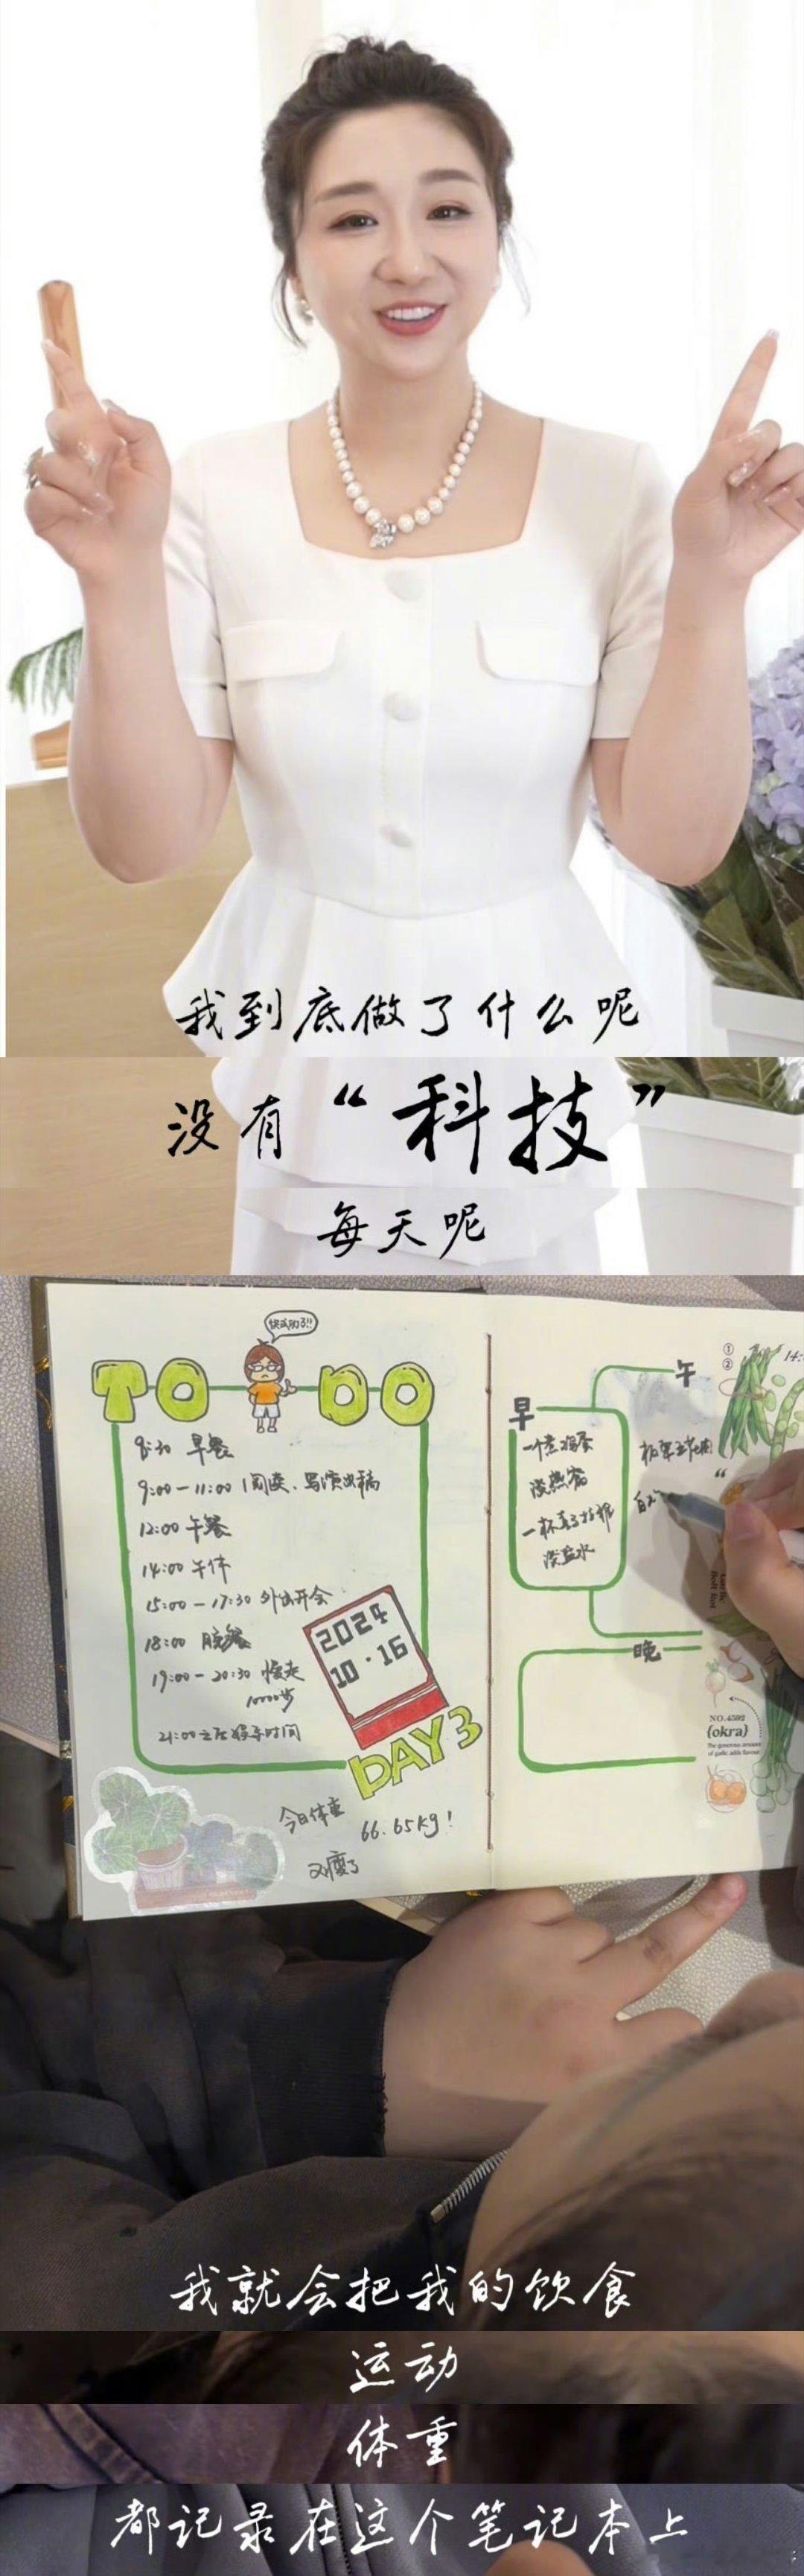 我到底做了什么呢
没有“科技”
每天呢
快成功了!!
TO DO
8:30 早餐
9:00－11:00 阅读、写演出稿
12:00 午餐
14:00 午休
15:00－17:30 外出开会
18:00 晚餐
19:00－20:30 慢走
10000步
21:00之后
时间
2024
10·16
DAY 3
今日体重
66.65kg!
又瘦了
早
一个煮鸡蛋
淡盐水
午
①
②
14:
晚
NO.4592
{okra}
The generous amount
of garlic adds flavour
我就会把我的饮食
运动
体重
都记录在这个笔记本上